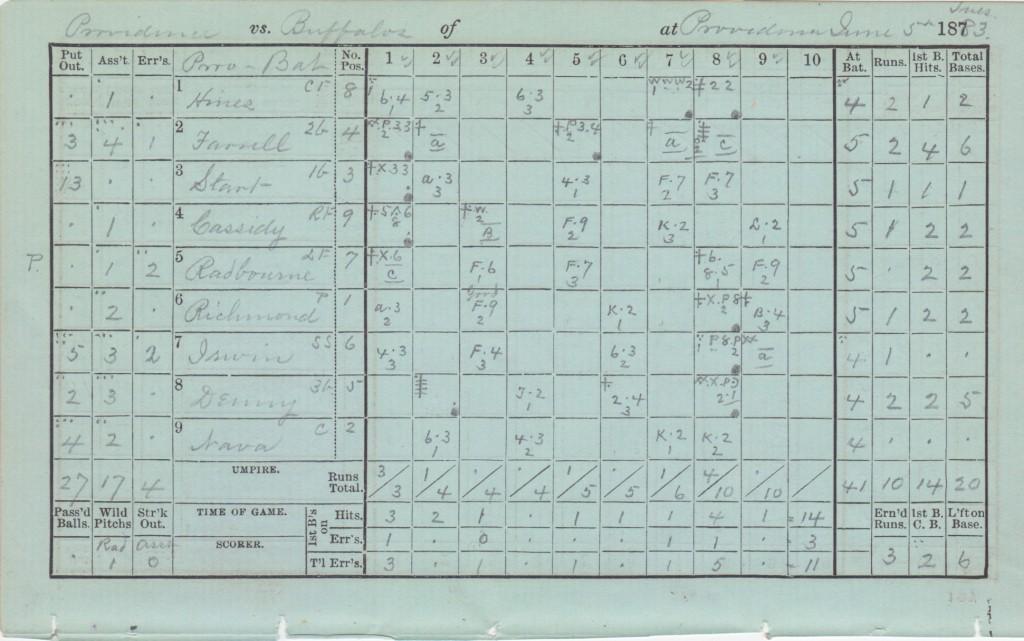 Providence vs. Buffalos of at Providence June 5th 1883. Tues.
Put Out. Ass't. Err's. Prov - Bat No. Pos. 1 2 3 4 5 6 7 8 9 10 At Bat. Runs. 1st B. Hits. Total Bases.
· 1 · 1 Hines CF 8 6·4 5·3 2 6·3 3 WWW2 1 ‡22 4 2 1 2
3 4 1 2 Farrell 2b 4 P.33 2 a P3.4 2 a c 5 2 4 6
13 · · 3 Start 1b 3 +X33 a·3 3 4·3 1 F·7 2 F·7 3 5 1 1 1
· 1 · 4 Cassidy RF 9 8 W. 2 B F·9 2 K·2 3 L·2 1 5 1 2 2
P. · 1 2 5 Radbourne LF 7 +X.6 c F·6 1 F·7 3 +6. 8.5 F·9 2 5 · 2 2
· 2 · 6 Richmond P 1 a·3 2 Good F·9 2 K·2 1 +X.P8 2 B·4 3 5 1 2 2
5 3 2 7 Irwin SS 6 4·3 3 F·4 3 6·3 2 P8.P 2 a 4 1 · ·
2 3 · 8 Denny 3b 5 J·2 1 2·4 3 2·1 4 2 2 5
4 2 · 9 Nava C 2 6·3 1 4·3 2 K·2 1 K·2 2 4 · · ·
27 17 4 UMPIRE. Runs Total. 3/3 1/4 ·/4 ·/4 1/5 ·/5 1/6 4/10 ·/10 / 41 10 14 20
Pass'd Balls. Wild Pitchs Str'k Out. TIME OF GAME. 1st B's on Hits. 3 2 1 · 1 1 1 4 1 = 14 Ern'd Runs. 1st B. C. B. L'ft on Base.
Err's. 1 · 0 · · · 1 1 · - 3
· Rad 1 0 SCORER. T'l Err's. 3 · 1 · 1 · 1 5 · - 11 3 2 6